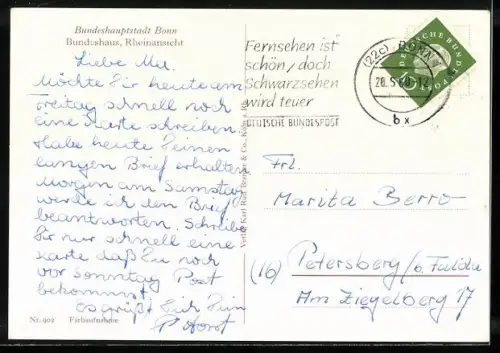 Bundeshauptstadt Bonn
Bundeshaus, Rheinansicht
Liebe Ma.
Möchte Dir heute am
Freitag schnell noch
eine Karte schreiben.
Habe heute Deinen
langen Brief erhalten
Morgen am Samstag
werde ich den Brief
beantworten. Schreibe
Dir nur schnell eine
Karte daß Du noch
vor Sonntag Post
bekommst
Es grüßt Dich Dein
Horst
Nr. 902 Farbaufnahme
Verlag Karl Rud. & Co., Köln
Fernsehen ist
schön, doch
Schwarzsehen
wird teuer
DEUTSCHE BUNDESPOST
(22c) BONN
20.5.60
bx
DEUTSCHE BUNDESPOST
Frl.
Marita Berro
(16) Petersberg / b. Fulda
Am Ziegelberg 17